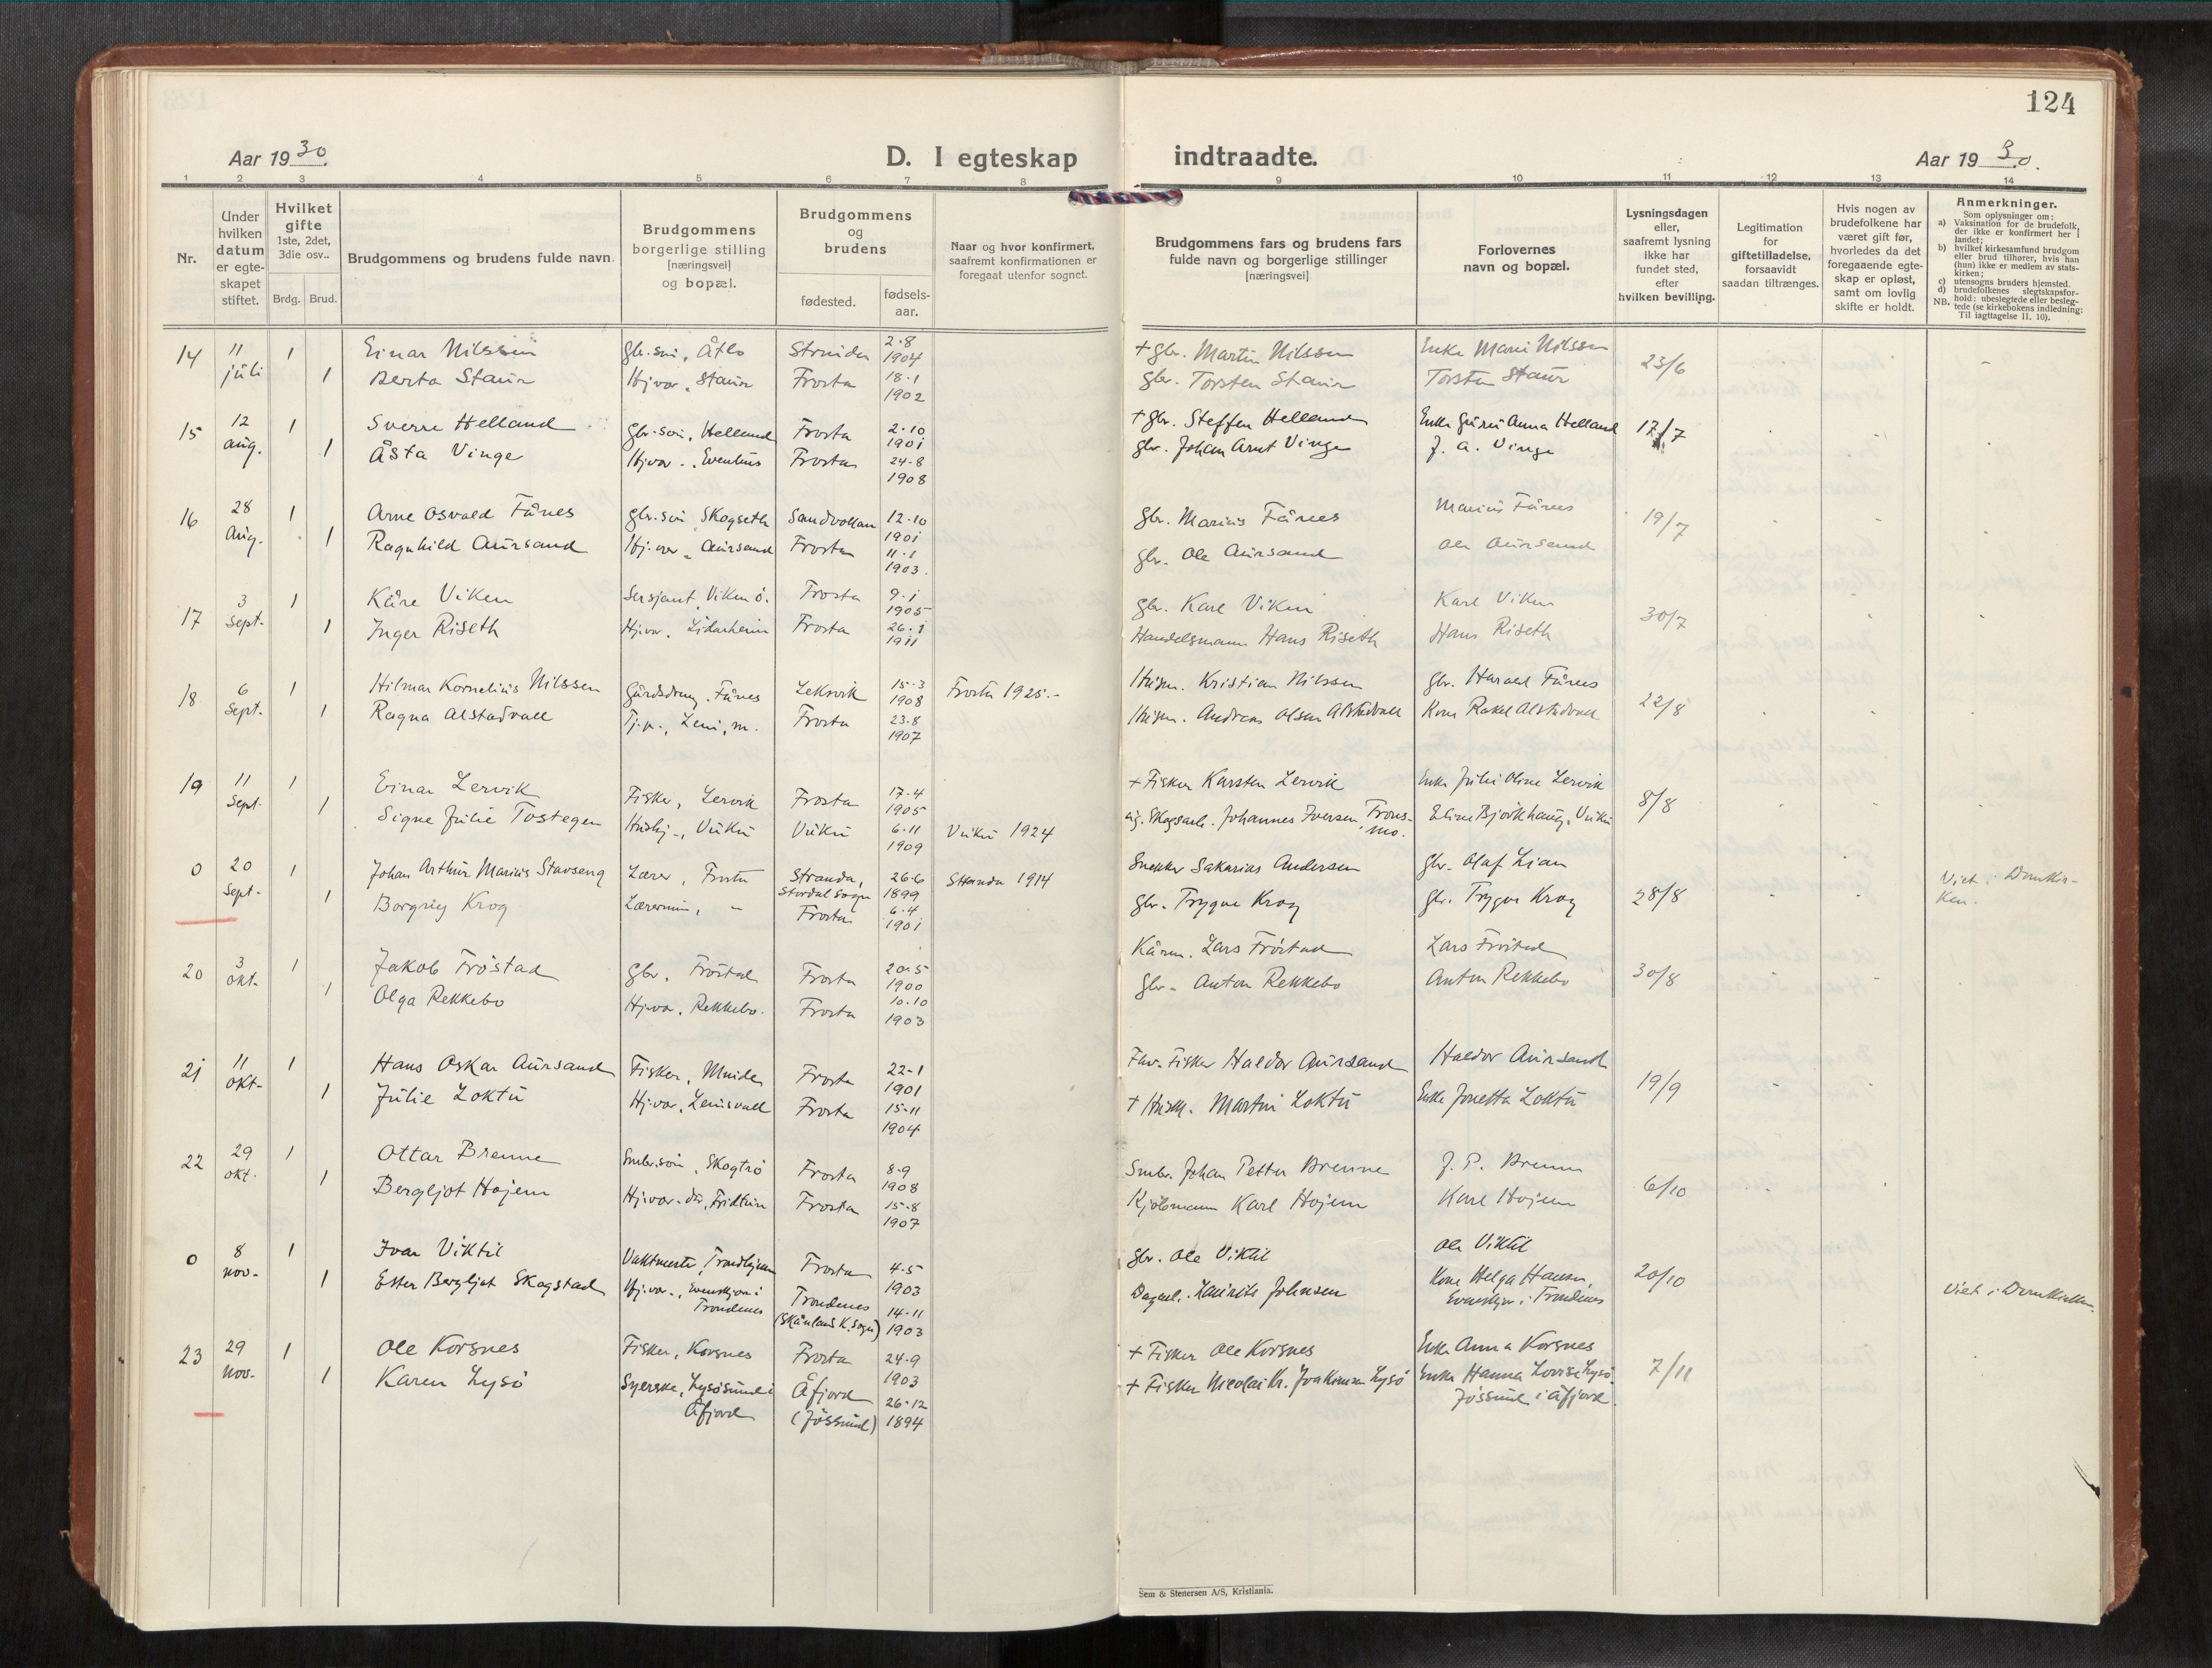 124
Aar 1930.
D. I egteskap
indtraadte.
Aar 1930.
1 2 3 4 5 6 7 8 9 10 11 12 13 14
Nr.
Under hvilken datum er egte-skapet stiftet.
Hvilket gifte 1ste, 2det, 3die osv..
Brdg. Brud.
Brudgommens og brudens fulde navn.
Brudgommens borgerlige stilling [næringsvei] og bopæl.
Brudgommens og brudens
fødested.
fødsels-aar.
Naar og hvor konfirmert, saafremt konfirmationen er foregaat utenfor sognet.
Brudgommens fars og brudens fars fulde navn og borgerlige stillinger [næringsvei]
Forlovernes navn og bopæl.
Lysningsdagen eller, saafremt lysning ikke har fundet sted, efter hvilken bevilling.
Legitimation for giftetilladelse, forsaavidt saadan tiltrænges.
Hvis nogen av brudefolkene har været gift før, hvorledes da det foregaaende egte-skap er opløst, samt om lovlig skifte er holdt.
Anmerkninger.
Som oplysninger om:
a) Vaksination for de brudefolk, der ikke er konfirmert her i landet;
b) hvilket kirkesamfund brudgom eller brud tilhører, hvis han (hun) ikke er medlem av stats-kirken;
c) utensogns bruders hjemsted.
d) brudefolkenes slegtskapsfor-hold: ubeslegtede eller besleg-tede (se kirkebokens indledning:
NB. Til iagttagelse II. 10).
14 11 juli 1 Einar Nilssen Gbr.søn, Åtlo Strinda 2.8 1904 + gbr. Martin Nilssen Enke Marie Nilssen 23/6
1 Berta Staur Hj.vær. Staur Frosta 18.1 1902 gbr. Torsten Staur Torsten Staur
15 12 aug. 1 Sverre Helland Gbr.søn, Helland Frosta 2.10 1901 + gbr. Steffen Helland Enke Guru Anna Helland 17/7
1 Åsta Vinge Hj.vær., Evenhus Frosta 24.8 1908 gbr. Johan Arnt Vinge J. A. Vinge
16 28 Aug. 1 Arne Osvald Fånes gbr.søn Skogseth Sandvollan 12.10 1901 gbr. Marius Fånes Marius Fånes 19/7
1 Ragnhild Aursand Hj.vær. Aursand Frosta 11.1 1903. gbr. Ole Aursand Ole Aursand
17 3 sept. 1 Kåre Viken Sersjant, Viken ö. Frosta 9.1 1905 gbr. Karl Viken Karl Viken 30/7
1 Inger Riseth Hj.vær. Lidarheim Frosta 26.1 1911 Handelsmann Hans Riseth Hans Riseth
18 6 sept. 1 Hilmar Kornelius Nilssen Gårdsdreng, Fånes Leksvik 15.3 1908 Frosta 1925.- Husm. Kristian Nilssen gbr. Harald Fånes 22/8
1 Ragna Alstadvall Tj.p., Lein, m. Frosta 23.8 1907 Husm. Andreas Olsen Alstadvall Kone Rakel Alstadvall
19 11 sept. 1 Einar Lervik Fisker, Lervik Frosta 17.4 1905 + Fisker Karsten Lervik Enke Julie Oline Lervik 8/8
1 Signe Julie Tostegen Hushj., Vuku Vuku 6.11 1909 Vuku 1924 Skogsarb. Johannes Iversen, Eline Bjørkhaug, Vuku
0 20 sept. 1 Johan Arthur Marius Stavseng Lærer, Frosta Stranda, Stordal sogn 26.6 1899 Stranda 1914 Snekker Sakarias Andersen gbr. Olaf Lian 28/8 Viet i Domkir-ken.
1 Borgny Krog Lærerinne, - Frosta 6.4 1901 gbr. Trygve Krog gbr. Trygve Krog
20 3 okt. 1 Jakob Fröstad gbr. Fröstad Frosta 20.5 1900 Kårm. Lars Fröstad Lars Fröstad 30/8
1 Olga Rekkebo Hj.vær. Rekkebo. Frosta 10.10 1903 gbr. Anton Rekkebo Anton Rekkebo
21 11 okt. 1 Hans Oskar Aursand Fisker, Småland Frosta 22-1 1901 Fhv. Fisker Haldor Aursand Haldor Aursand 19/9
1 Julie Loktu Hj.vær. Leinsvall Frosta 15-11 1904 + Husm. Martin Loktu Enke Jonetta Loktu
22 29 okt. 1 Ottar Brenne Smbr.søn, Skogtrö Frosta 8.9 1908 Smbr. Johan Petter Brenne J. P. Brenne 6/10
1 Bergljot Hojem Hj.vær. Fridheim Frosta 15.8 1907 Kjöbmann Karl Hojem Karl Hojem
0 8 nov. 1 Ivar Viktil Vaktmester, Trondhjem Frosta 4.5 1903 gbr. Ole Viktil Ole Viktil 20/10 Viet i Domkirken.
1 Ester Bergljot Skogstad Hj.vær., Evenskjær i Trondenes Trondenes (Skånland K. sogn) 14-11 1903 Dagarb. Laurits Johnsen Kone Helga Hansen, Evenskjær i Trondenes
23 29 nov. 1 Ole Korsnes Fisker, Korsnes Frosta 24.9 1903 + Fisker Ole Korsnes Enke Anna Korsnes 7/11
1 Karen Lysö Syerske, Lysösund i Åfjord Åfjord (Jössund) 26-12 1894 + Fisker Nicolai Kr. Joakimsen Lysö Enke Hanna Lovise Lysö, Jössund i Åfjord.
Sem & Stenersen A/S, Kristiania.